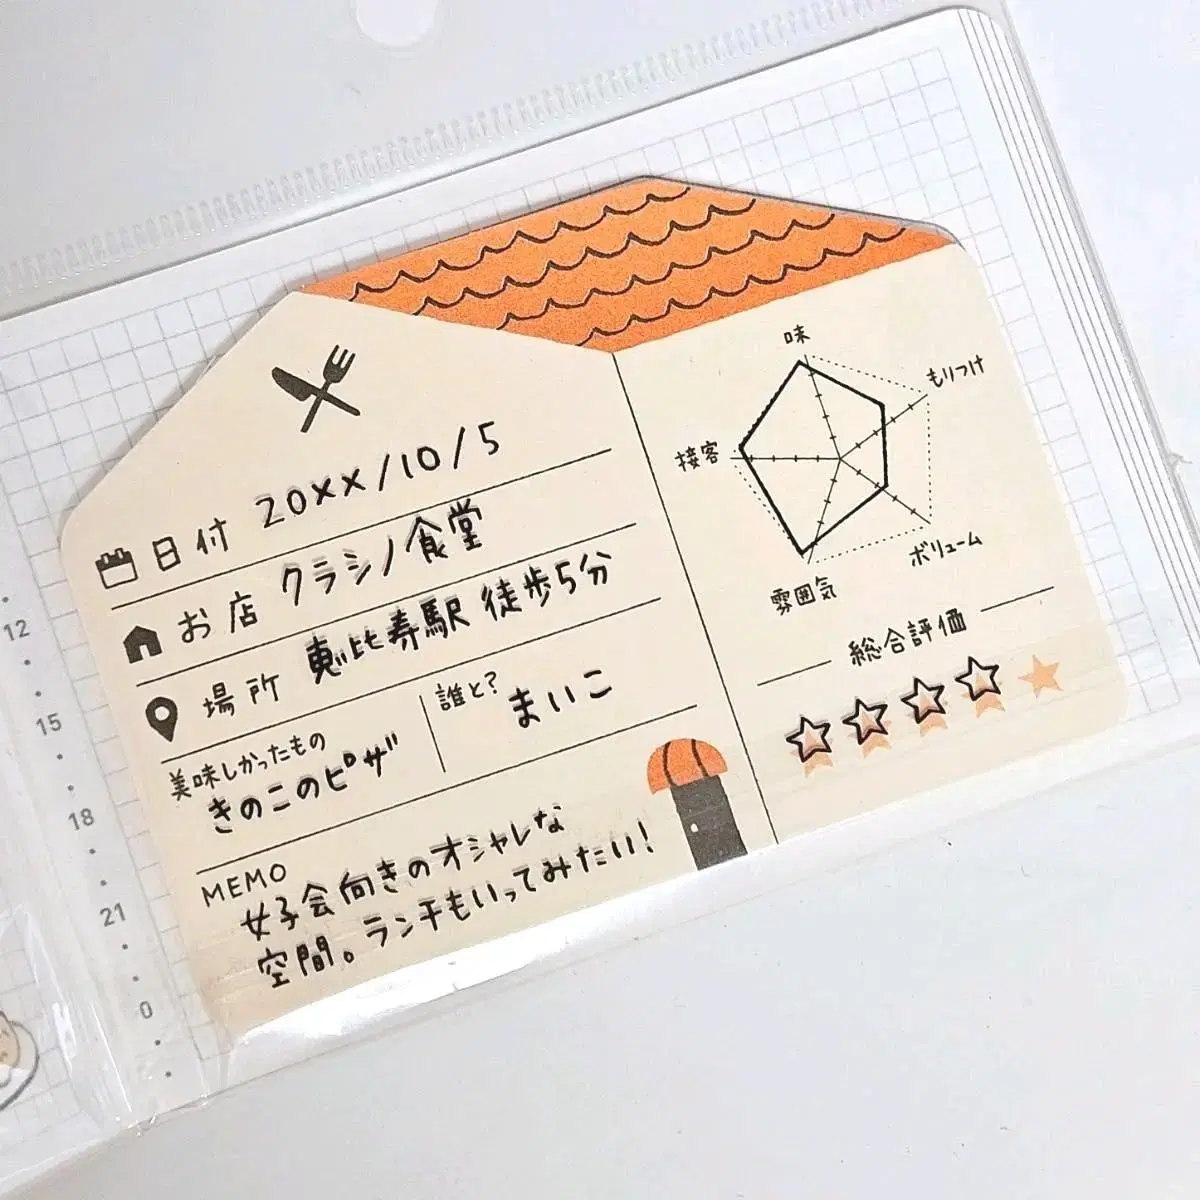 日付 20××/10/5
お店 クラシノ食堂
場所 恵比寿駅 徒歩5分
美味しかったもの
きのこのピザ
誰と?
まいこ
MEMO
女子会向きのオシャレな
空間。ランチもいってみたい!
味
もりつけ
接客
ボリューム
雰囲気
総合評価
12
15
18
21
0